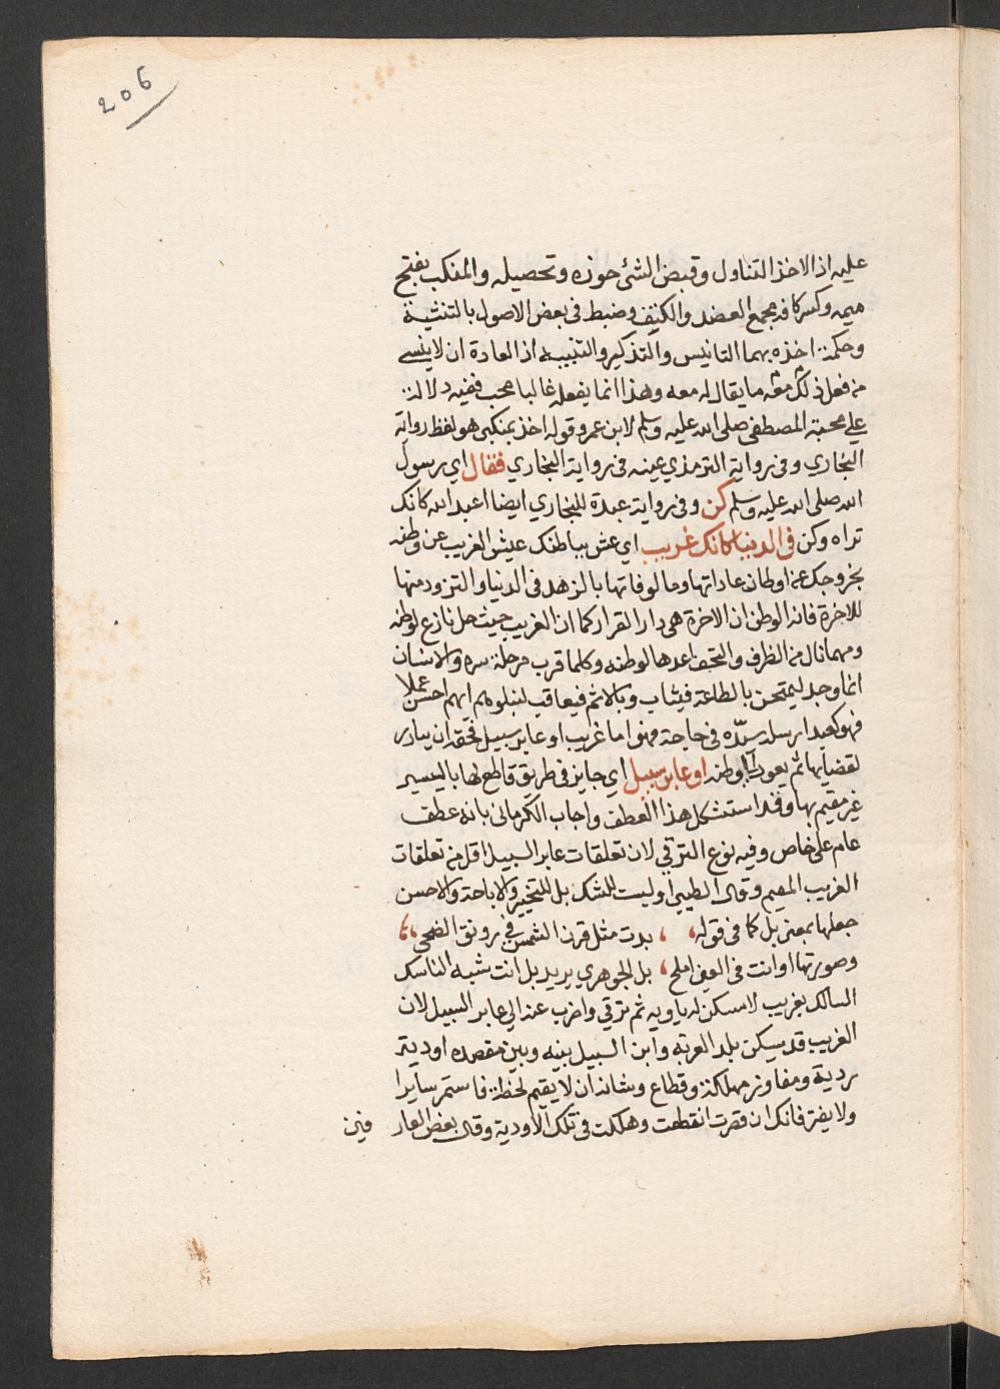 206
عليه اذ الاخذ التناول وقبض الشئ حوزه وتحصيله والمنكب بفتح
ميمه وكسر كافه مجمع العضد والكتف وضبط في بعض الاصول بالتثنية
وحكمة اخذه بهما التانيس والتذكير والتنبيه اذ العادة ان لا ينسى
من فعل ذلك معه ما يقال له معه وهذا انما يفعله غالبا محب ففيه دلالة
على محبة المصطفى صلى الله عليه وسلم لابن عمر وقوله اخذ بمنكبي هو لفظ رواية
البخاري وفي رواية الترمذي عينه في رواية البخاري فقال اي رسول
الله صلى الله عليه وسلم كن وفي رواية عبدة للبخاري ايضا اعبد الله كانك
تراه وكن في الدنيا كانك غريب اي عش بباطنك عيش الغريب عن وطنه
بخروجك عن اوطان عاداتها ومالوفاتها بالزهد في الدنيا والتزود منها
للاخرة فانه الوطن ان الاخرة هي دار القرار كما ان الغريب حيث حل نازع لوطنه
ومهما نال من الظرف والتحف اعدها لوطنه وكلما قرب مرحلة سره والانسان
انما وجد ليمتحن بالطاعة فيثاب وبالاثم فيعاقب لنبلوهم ايهم احسن عملا
فهو كعبد ارسله سيّده في حاجة فهو اما غريب او عابر سبيل فحقه ان يبادر
لقضايها ثم يعود الى وطنه او عابر سبيل اي جايز في طريق قاطع لها باليسير
غير مقيم بها وقد استشكل هذا العطف واجاب الكرماني بانه عطف
عام على خاص وفيه نوع الترقي لان تعلقات عابر السبيل اقل من تعلقات
الغريب المقيم وقال الطيبي او ليست للشك بل للتخيير والاباحة والاحسن
جعلها بمعنى بل كما في قوله ، ، بدت مثل قرن الشمس في رونق الضحى ،،
وصورتها او انت في العين املح ، بل الجوهري يريد بل انت شبه الناسك
السالك بغريب لا مسكن له ياويه ثم ترقي واضرب عنه الى عابر السبيل لان
الغريب قد يسكن بلد الغربة وابن السبيل بينه وبين مقصده اودية
ردية ومفاوز مهلكة وقطاع وشانه ان لا يقيم لحظة فاستمر سايرا
ولا يفتر فانك ان قصرت انقطعت وهلكت في تلك الاودية وقال بعض العارفين